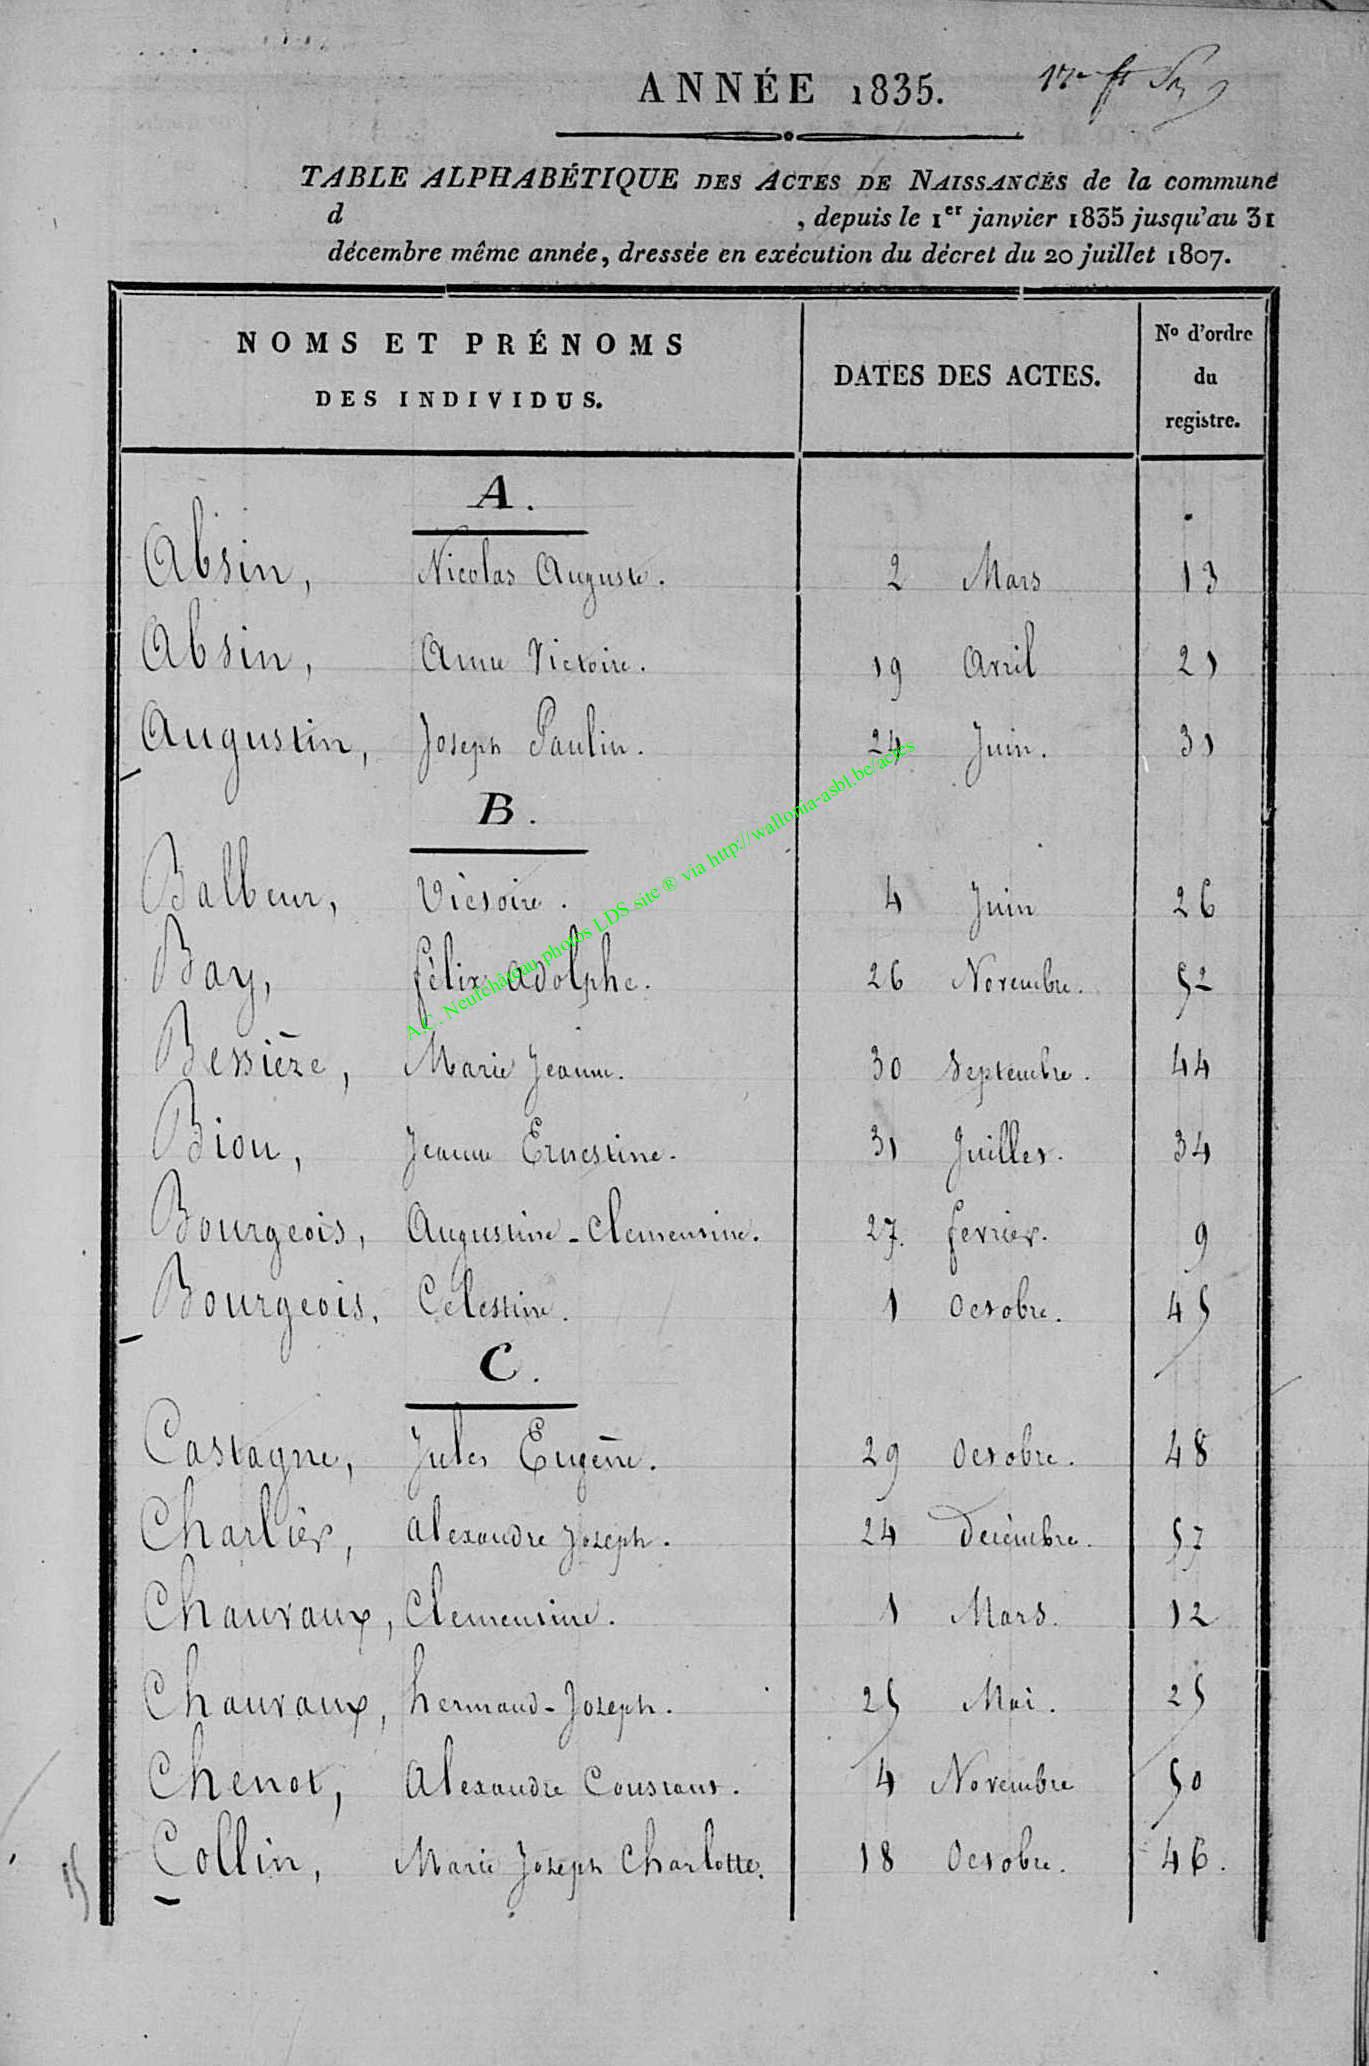 ANNÉE 1835.
TABLE ALPHABÉTIQUE DES ACTES DE NAISSANCES de la commune
d , depuis le 1er janvier 1835 jusqu'au 31
décembre même année, dressée en exécution du décret du 20 juillet 1807.
NOMS ET PRÉNOMS DES INDIVIDUS. DATES DES ACTES. No d'ordre du registre.
A.
Absin, Nicolas Auguste. 2 Mars 13
Absin, Anne Victoire. 19 Avril 21
Augustin, Joseph Paulin. 24 Juin. 31
B.
Balbeur, Victoire. 4 Juin 26
Bay, félix Adolphe. 26 Novembre. 52
Bessière, Marie Jeanne. 30 Septembre. 44
Biou, Jeanne Ernestine. 31 Juillet. 34
Bourgeois, Augustine-Clementine. 27. fevrier. 9
Bourgeois, Célestine. 1 Octobre. 45
C.
Castagne, Jules Eugène. 29 Octobre. 48
Charlier, Alexandre Joseph. 24 Decembre. 57
Chauvaux, Clementine. 1 Mars. 12
Chauvaux, hermand-Joseph. 25 Mai. 25
Chenot, Alexandre Constant. 4 Novembre 50
Collin, Marie Joseph Charlotte. 18 Octobre. 46.
15
A.C. Neufchâteau photos LDS site ® via http://wallonia-asbl.be/actes